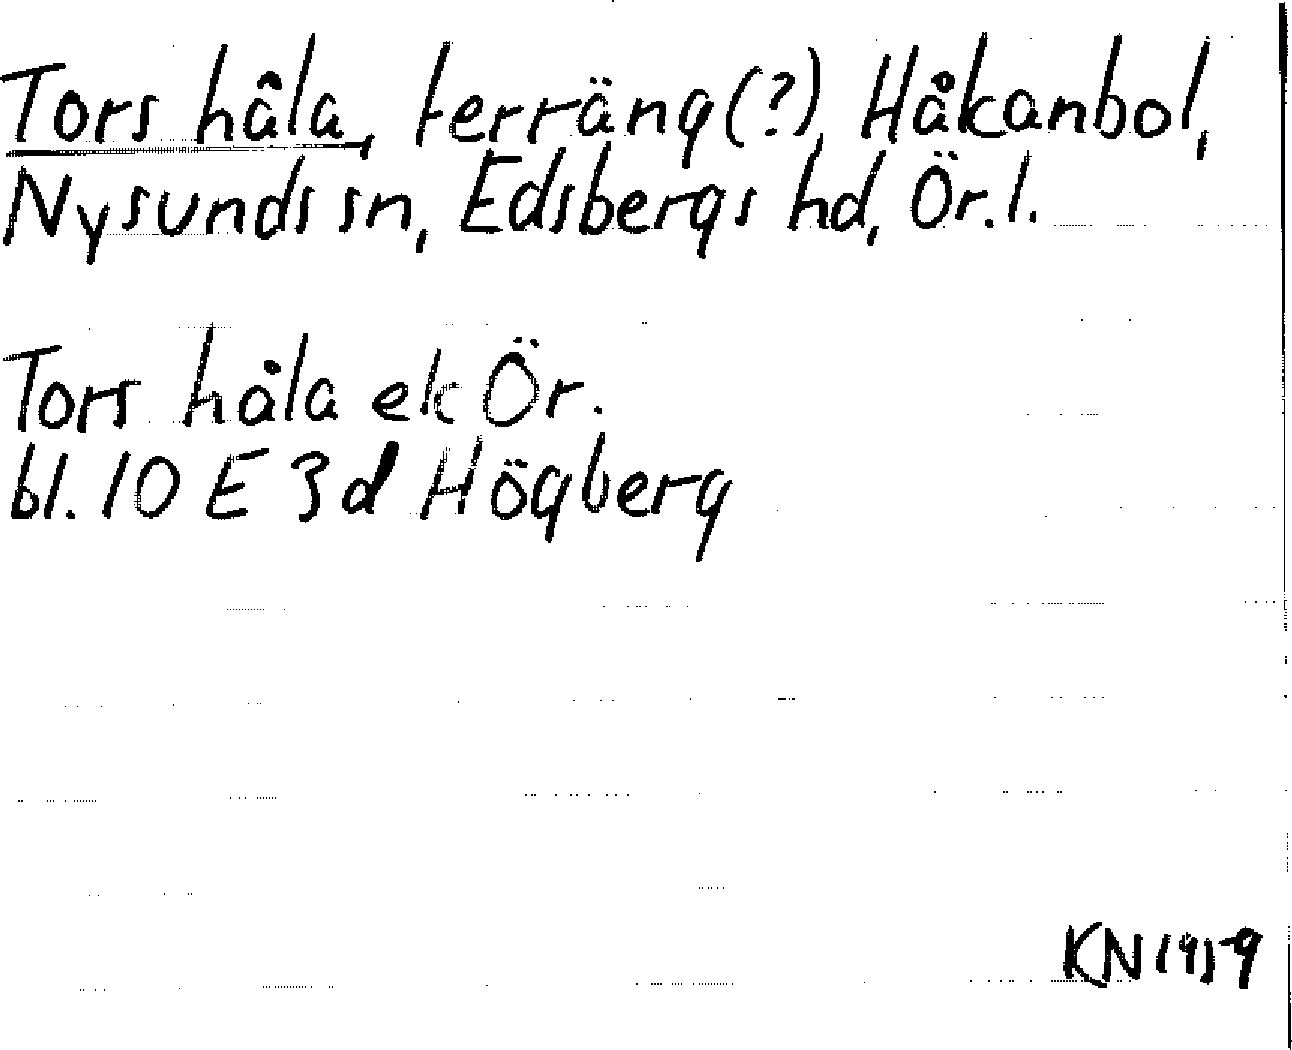 Tors håla, terräng (?), Håkanbol,
Nysunds sn, Edsbergs hd, Ör. l.
Tors håla ek Ör.
bl. 10 E 3d Högberg
KN 1959